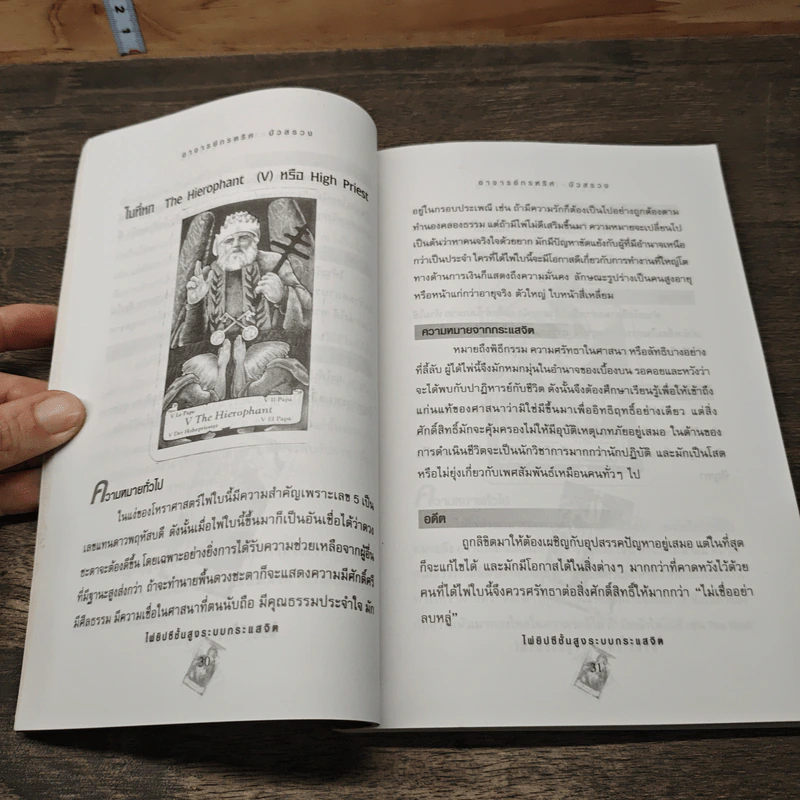 2
1
อาจารย์กรหริศ บัวสรวง
ไบที่หก The Hierophant (V) หรือ High Priest
V Le Pape
V Il Papa
V The Hierophant
V Der Hohepriester
V El Papa
ความหมายทั่วไป
ในแง่ของโหราศาสตร์ไพ่ใบนี้มีความสำคัญเพราะเลข 5 เป็น
เลขแทนดาวพฤหัสบดี ดังนั้นเมื่อไพ่ใบนี้ขึ้นมาก็เป็นอันเชื่อได้ว่าดวง
ชะตาจะต้องดีขึ้น โดยเฉพาะอย่างยิ่งการได้รับความช่วยเหลือจากผู้อื่น
ที่มีฐานะสูงส่งกว่า ถ้าจะทำนายพื้นดวงชะตาก็จะแสดงความมีศักดิ์ศรี
มีศีลธรรม มีความเชื่อในศาสนาที่ตนนับถือ มีคุณธรรมประจำใจ มัก
ไพ่ยิปซีชั้นสูงระบบกระแสจิต
30
อาจารย์กรหริศ บัวสรวง
อยู่ในกรอบประเพณี เช่น ถ้ามีความรักก็ต้องเป็นไปอย่างถูกต้องตาม
ทำนองคลองธรรม แต่ถ้ามีไพ่ไม่ดีเสริมขึ้นมา ความหมายจะเปลี่ยนไป
เป็นต้นว่าหาคนจริงใจด้วยยาก มักมีปัญหาขัดแย้งกับผู้ที่มีอำนาจเหนือ
กว่าเป็นประจำ ใครที่ได้ไพ่ใบนี้จะมีโอกาสดีเกี่ยวกับการทำงานที่ใหญ่โต
ทางด้านการเงินก็แสดงถึงความมั่นคง ลักษณะรูปร่างเป็นคนสูงอายุ
หรือหน้าแก่กว่าอายุจริง ตัวใหญ่ ใบหน้าสี่เหลี่ยม
ความหมายจากกระแสจิต
หมายถึงพิธีกรรม ความศรัทธาในศาสนา หรือลัทธิบางอย่าง
ที่ลี้ลับ ผู้ได้ไพ่นี้จึงมักหมกมุ่นในอำนาจของเบื้องบน รอคอยและหวังว่า
จะได้พบกับปาฏิหารย์กับชีวิต ดังนั้นจึงต้องศึกษาเรียนรู้เพื่อให้เข้าถึง
แก่นแท้ของศาสนาว่ามิใช่มีขึ้นมาเพื่ออิทธิฤทธิ์อย่างเดียว แต่สิ่ง
ศักดิ์สิทธิ์มักจะคุ้มครองไม่ให้มีอุบัติเหตุเภทภัยอยู่เสมอ ในด้านของ
การดำเนินชีวิตจะเป็นนักวิชาการมากกว่านักปฏิบัติ และมักเป็นโสด
หรือไม่ยุ่งเกี่ยวกับเพศสัมพันธ์เหมือนคนทั่วๆ ไป
อดีต
ถูกลิขิตมาให้ต้องเผชิญกับอุปสรรคปัญหาอยู่เสมอ แต่ในที่สุด
ก็จะแก้ไขได้ และมักมีโอกาสได้ในสิ่งต่างๆ มากกว่าที่คาดหวังไว้ด้วย
คนที่ได้ไพ่ใบนี้จึงควรศรัทธาต่อสิ่งศักดิ์สิทธิ์ให้มากกว่า “ไม่เชื่ออย่า
ลบหลู่”
ไพ่ยิปซีชั้นสูงระบบกระแสจิต
31